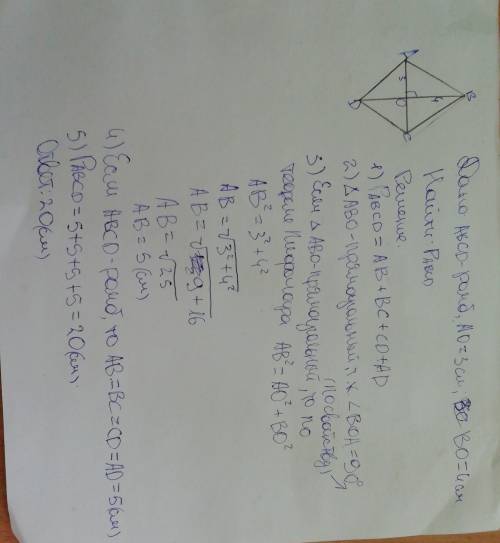 Дано ABCD-ромб, AO=3см, BO=4см
Найти: PABCD
A
B
C
D
O
3
4
Решение:
1) PABCD = AB+BC+CD+AD
2) △ABO-прямоугольный, т.к ∠BOA=90°
(по свойству)
3) Если △ABO-прямоугольный, то по
теореме Пифагора AB²=AO²+BO²
AB²=3²+4²
AB=√3²+4²
AB=√9+16
AB=√25
AB=5(см)
4) Если ABCD-ромб, то AB=BC=CD=AD=5(см)
5) PABCD=5+5+5+5=20(см)
Ответ: 20(см)